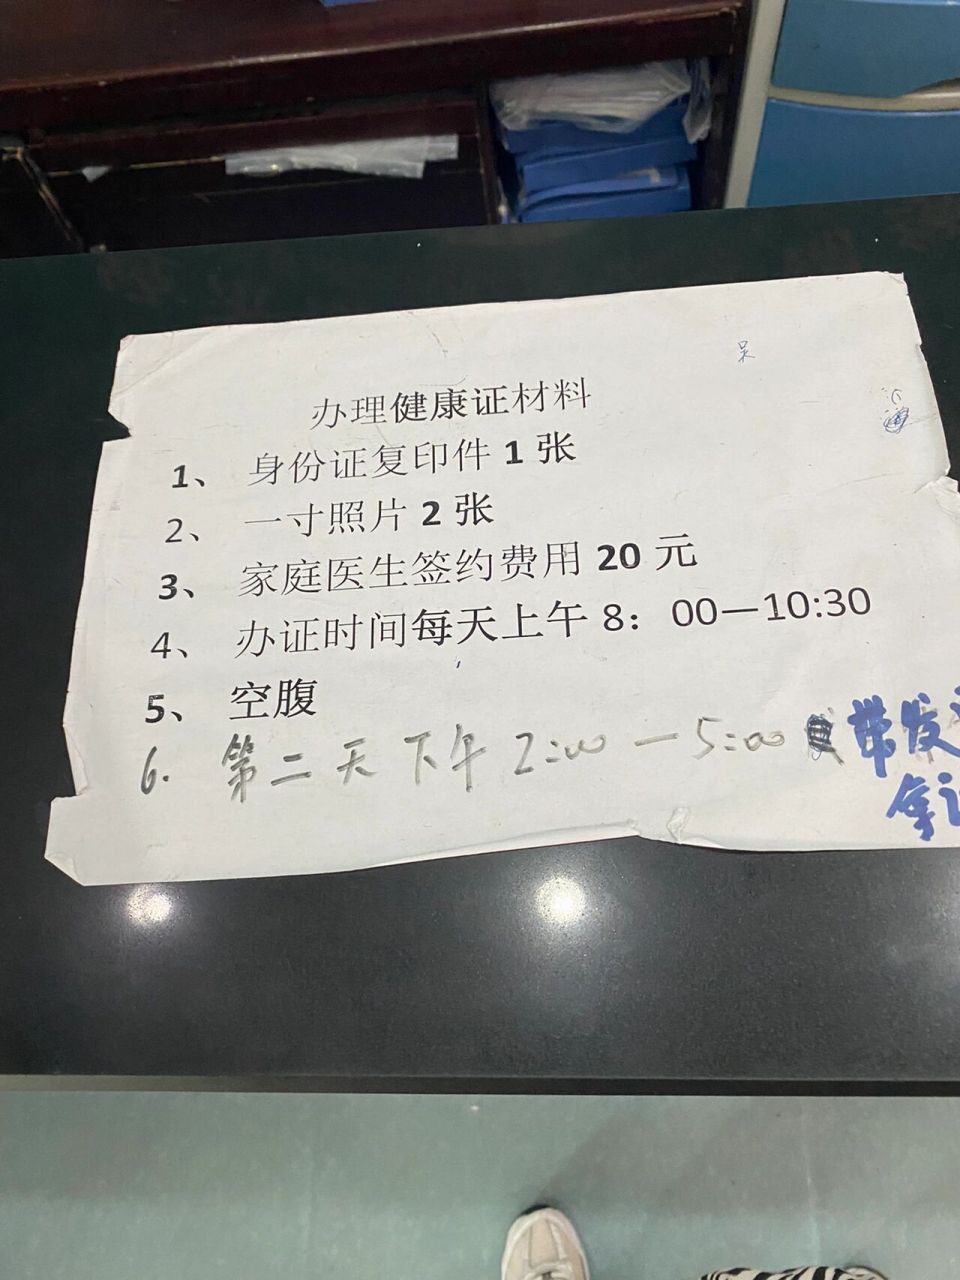 吴
办理健康证材料
1、 身份证复印件 1 张
2、 一寸照片 2 张
3、 家庭医生签约费用 20 元
4、 办证时间每天上午 8：00—10:30
5、 空腹
6. 第二天下午 2:00 — 5:00 带发
拿